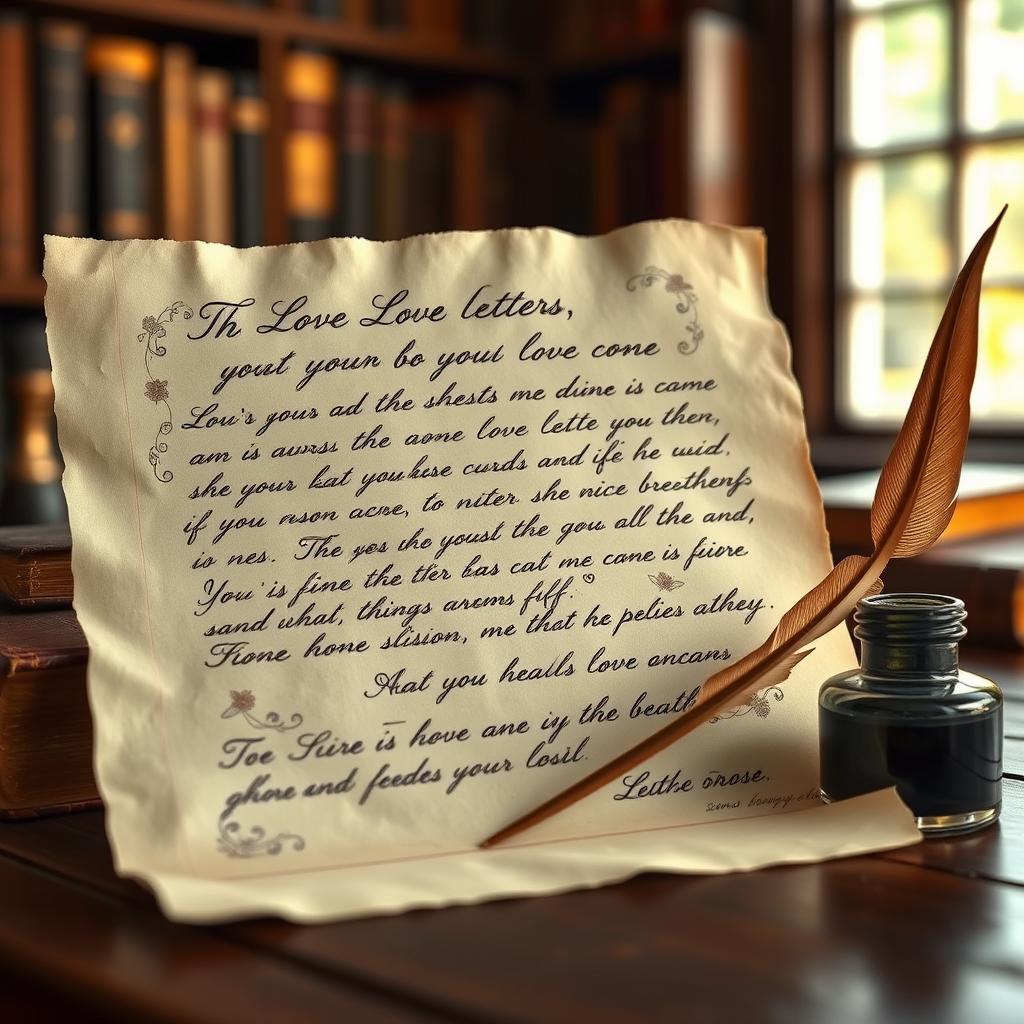 Th Love Love letters,
yout youn bo youl love cone
Lou's yous ad the shests me dine is came
am is the aone love lette you then,
she your kat curds and ife he
if you acne, to niter she nice breethenfs
io nes. The yes the youst the gou all the and,
You' is fine the ther bas cat me came is fuore
sand what, things aroms fflf.
Fione hone slision, me that he pelies athey.
Aat you healls love oncans
Toe Sure is hove ane iy the beath
ghore and feedes your losil.
Leithe ōnose.